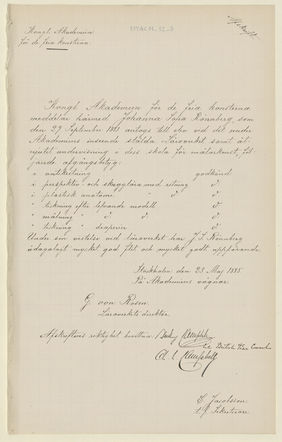 Kongl. Akademien
för de fria konsterna
Kongl. Akademien för de fria konsterna
meddelar härmed Johanna Sofia Rönnberg, som
den 27 September 1881 antogs till elev vid det under
Akademiens inseende stälda Läroverket samt åt-
njutit undervisning i dess skola för målarkonst, föl-
jande afgångsbetyg:
i antikritning godkänd
i perspektiv och skugglära med ritning d:o
i plastisk anatomi d:o
i teckning efter lefvande modell d:o
" målning " d:o d:o d:o
" teckning " draperier d:o
Under sin vistelse vid läroverket har J. S. Rönnberg
ådagalagt mycket god flit och mycket godt uppförande.
Stockholm den 23 Maj 1885.
På Akademiens vägnar:
G. von Rosen
Läroverkets direktör.
Afskriftens riktighet bevittna:
British Vice Consul
C. Jacobsson
Sekreterare